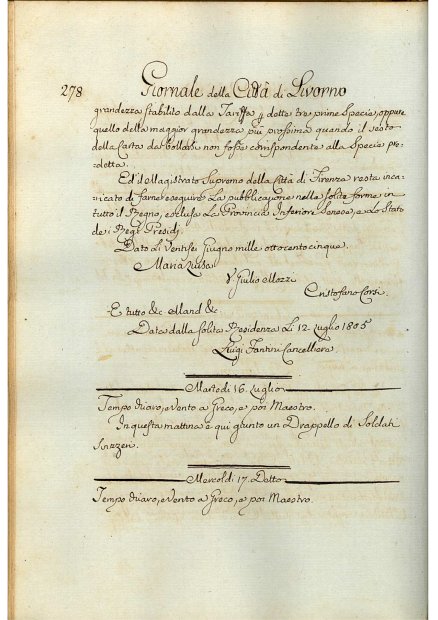 278 Giornale della Città di Livorno
grandezza stabilito dalla Tariffa p dette tre prime Specie, oppure
quello della maggior grandezza più prossima quando il sesto
della Carta da bollarsi non fosse corrispondente alla Specie pre-
detta.
Ed il Magistrato Supremo della Città di Firenze resta inca-
ricato di farne eseguire La pubblicazione nelle solite forme in
tutto il Regno, esclusa La Provincia Inferiore Senese, e Lo Stato
dei Regi Presidj.
Dato Li Ventisei Giugno mille ottocento cinque.
Maria Luisa
V. Giulio Mozzi
Cristofano Corsi.
E tutto &c. Mand &c.
Data dalla solita Residenza Li 12. Luglio 1805
Luigi Fantini Cancelliere
Martedì 16. Luglio
Tempo chiaro, e Vento a Greco, e poi Maestro.
In questa mattina è qui giunto un Drappello di Soldati
Svizzeri.
Mercoldì 17. Detto
Tempo chiaro, e Vento a Greco, e poi Maestro.